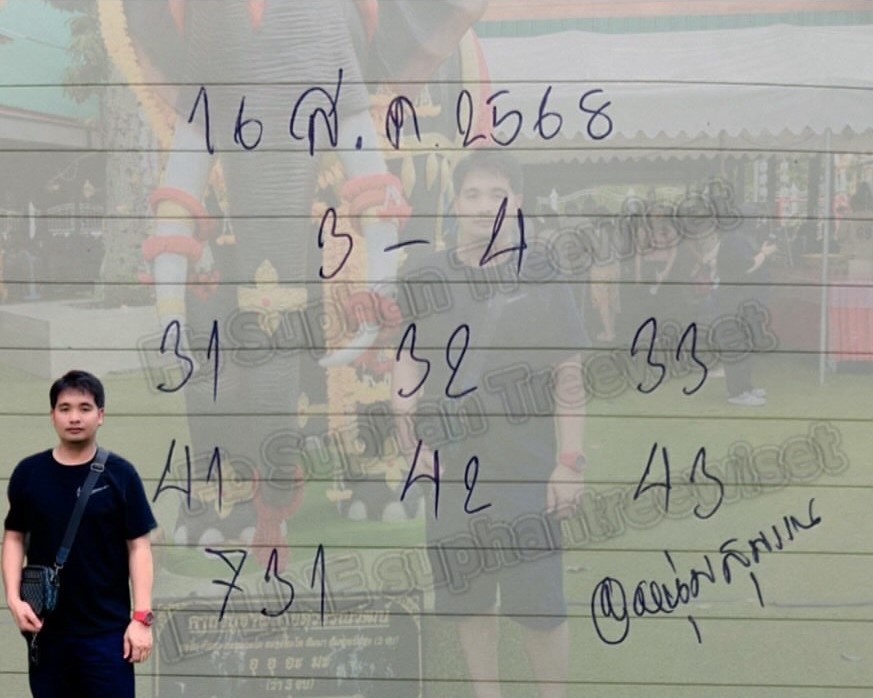 16 ส.ค. 2568
3 - 4
31 32 33
41 42 43
731
@หนุ่มสุพรรณ
FB Suphan Treewiset
FB Suphan Treewiset
LINE suphantreewiset